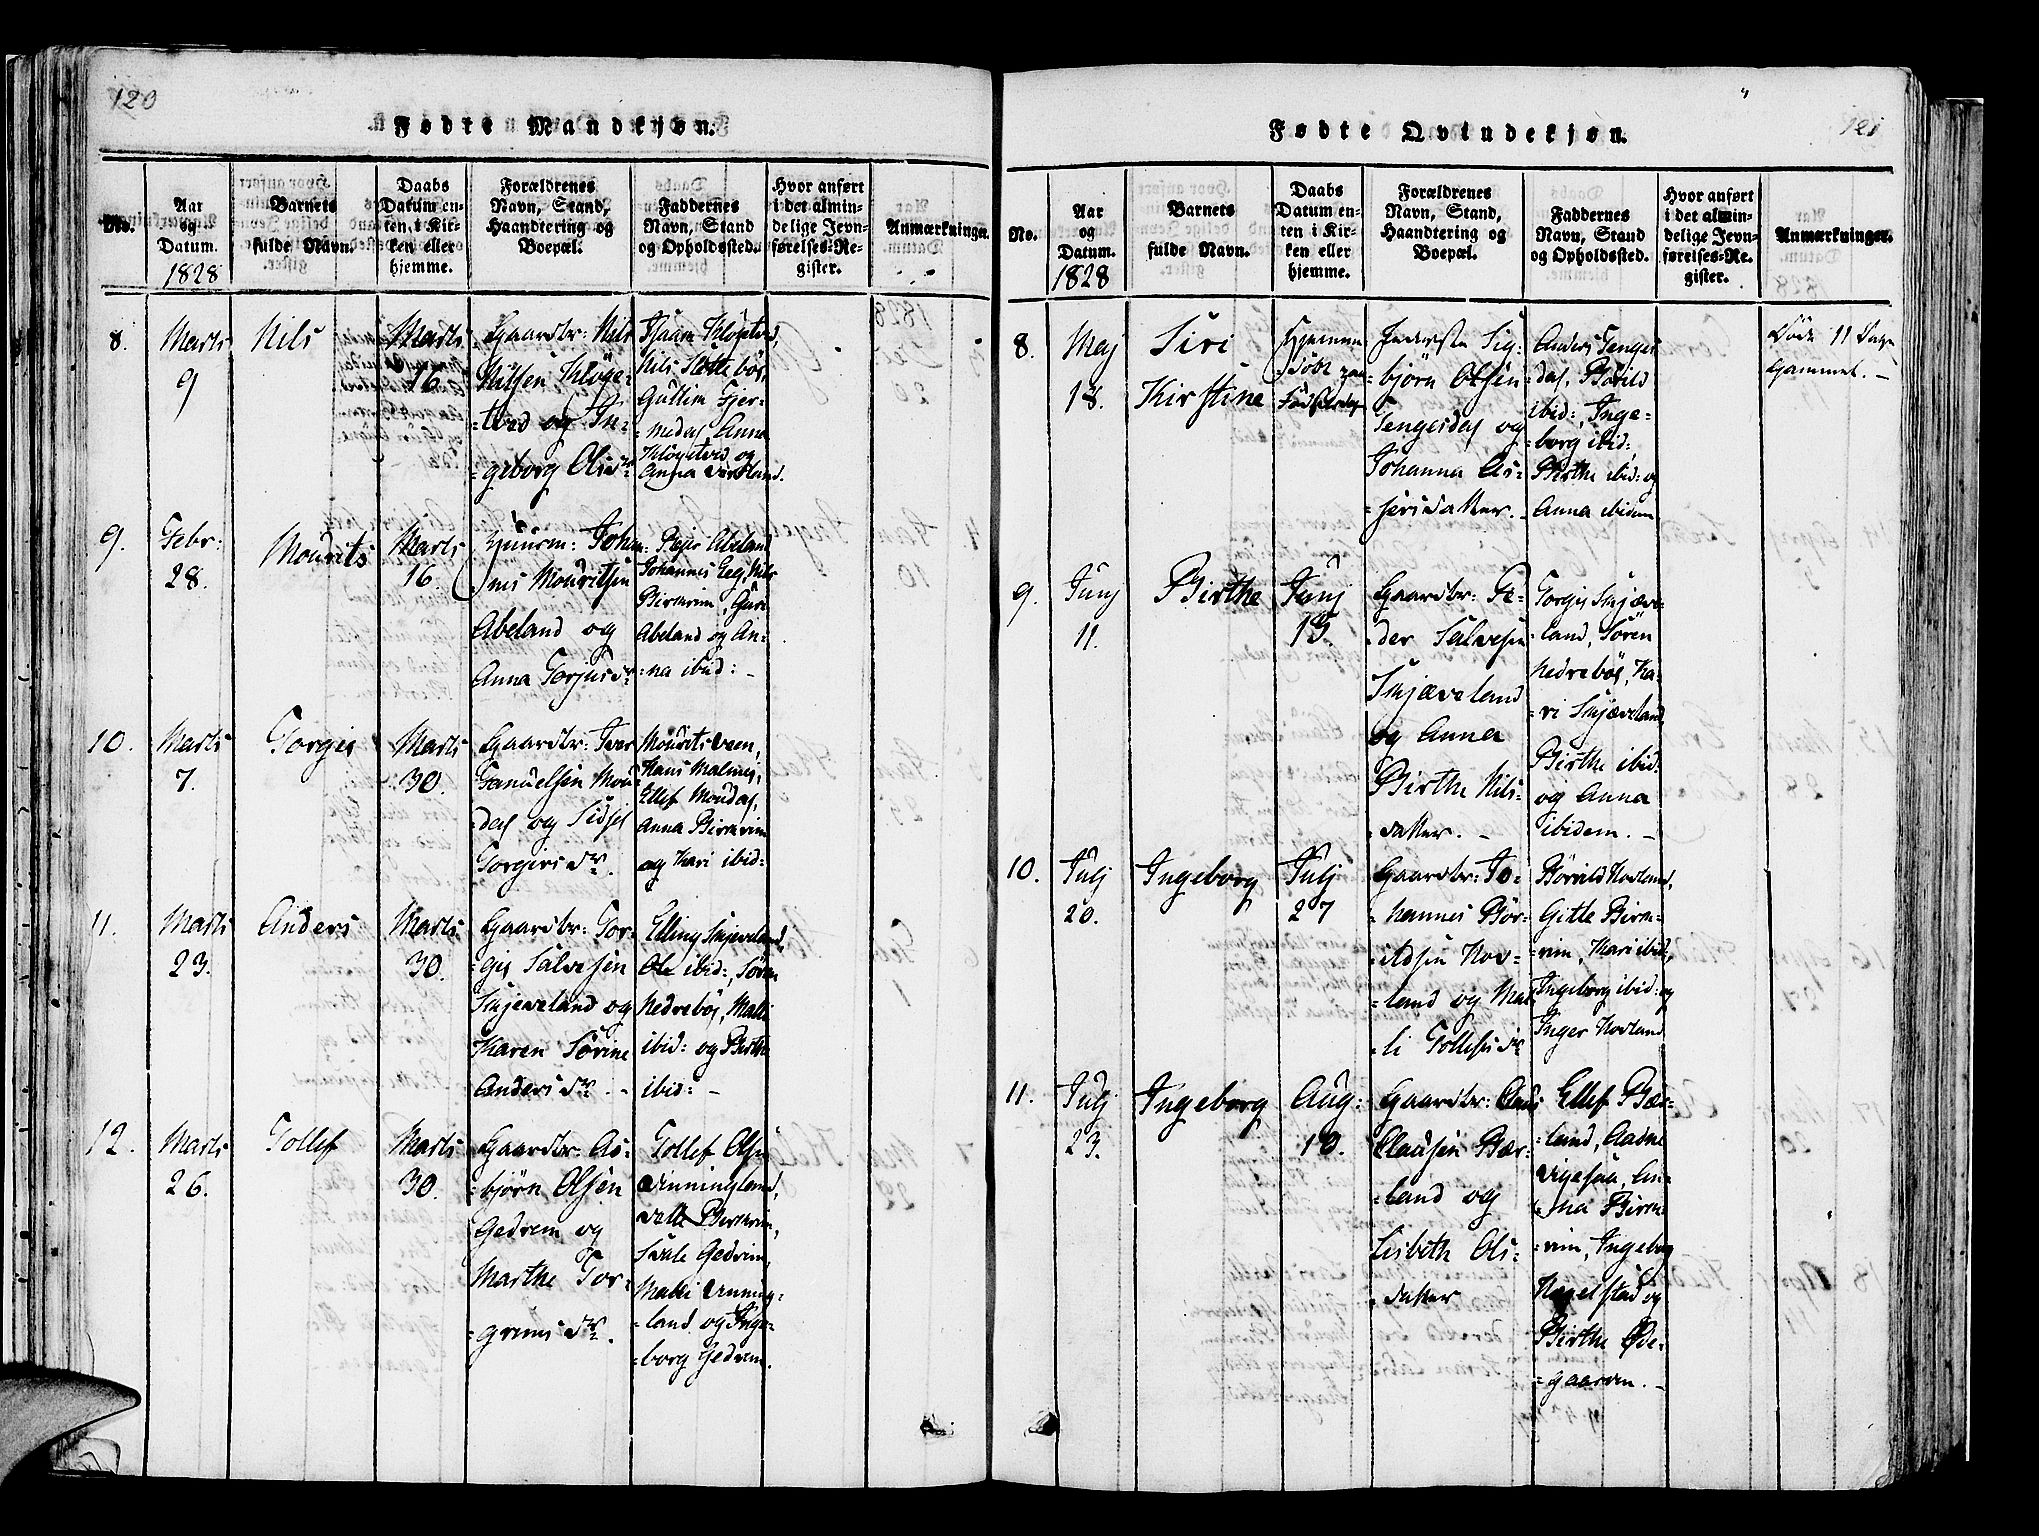 120
Fødte Mandkjøn.
No.
Aar
og
Datum.
1828
Barnets
fulde Navn.
Daabs
Datum en-
ten i Kir-
ken eller
hjemme.
Forældrenes
Navn, Stand,
Haandtering og
Boepæl.
Faddernes
Navn, Stand
og Opholdssted.
Hvor anført
i det almin-
delige Jevn-
førelses-Re-
gister.
Anmærkninger.
8.
Marts
9
Nils
Marts
16.
Gaardbr: Nils
Nilsen Kløge-
=tved og In-
=geborg Olisdr
Nils Slettebøe,
Guttim Fjer-
=medal Anna
Kløgetved og
9.
Febr:
28.
Mourits
Marts
16.
Huusm: Johan-
=nes Mouritsen
Abeland og
Anna Torjusdr
Pejer Abeland
Johannes Eeg, Nils
Birkrim, Guri
Abeland og An-
=na ibid: -
10.
Marts
7.
Torgis
Marts
30.
Gaardbr: Iver
Samuelsen Mou-
=dal og Sidsel
Torgersdr.
Mourits Veen,
Hans Malmei,
Ellef Moudal,
Anna Birkrim
og Kari ibid:
11.
Marts
23.
Anders
Marts
30.
Gaardbr: Tor-
=gis Salvesen
Skjeveland og
Karen Sørine
Andersdr. -
Elling Skjeveland,
Ole ibid:, Søren
Nedrebøe, Malli
ibid: og Birthe
ibid: -
12.
Marts
26.
Tollef
Marts
30.
Gaardbr: As-
=bjørn Olsen
Gedrem og
Marthe Tor-
=grimsdr.
Tollef Olsen
Birkrim,
Svale Gedrem,
Malli
=land og Inge-
=borg Gedrem.
121
Fødte Qvindekjøn.
No.
Aar
og
Datum.
1828
Barnets
fulde Navn.
Daabs
Datum en-
ten i Kir-
ken eller
hjemme.
Forældrenes
Navn, Stand,
Haandtering og
Boepæl.
Faddernes
Navn, Stand
og Opholdssted.
Hvor anført
i det almin-
delige Jevn-
førelses-Re-
gister.
Anmærkninger.
8.
Maj
18.
Siri
Kirstine
Hjemme
døbt paa
Inderste Sig-
=bjørn Olsen
Tengesdal og
Johanna As-
=seridatter. -
Anders Tenges
dal, Børild
ibid:, Inge-
=borg ibid:,
Birthe ibid: og
Anna ibidem
Døde 11 Dage
Gammel. -
9.
Junj
11.
Birthe
Junj
15.
Gaardbr: Pe-
=der Salvesen
Skjæveland
og Anna
Birthe Nils-
=datter. -
Torgis Skjæve-
=land, Søren
Nedrebøe, Ka-
=ri Skjæveland
Birthe ibid:
og Anna
ibidem. -
10.
Julj
20.
Ingeborg
Julj
27
Gaardbr: Jo-
=hannes Bør-
=ildsen Hov-
=land og Mal-
li Tollefsdr
Børild Hovland,
Gitle Birk-
=rim, Mari ibid,
Ingeborg ibid: og
Inger Hovland
11.
Julj
23.
Ingeborg
Aug:
10.
Gaardbr: Claus
Clausen Bær-
=land og
Lisbeth Ols-
=datter
Ellef Bær-
=land, Aadne
Vigesaa, An-
=na Birk-
=rim, Ingeborg
Hegelstad og
Birthe Øde-
=gaarden. -